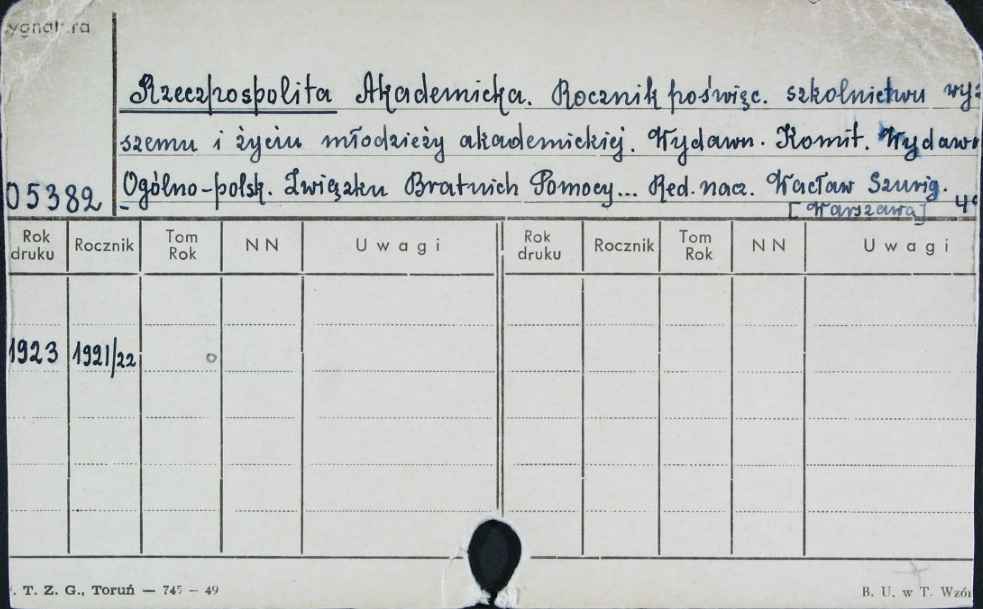 ygnatura
Rzeczpospolita Akademicka. Rocznik poświęc. szkolnictwu wyż
szemu i życiu młodzieży akademickiej. Wydawn. Komit. Wydawn
05382 Ogólno-polsk. Związku Bratnich Pomocy... Red. nacz. Wacław Szurig.
[Warszawa] 4°
Rok druku Rocznik Tom Rok N N Uwagi Rok druku Rocznik Tom Rok N N Uwagi
1923 1921/22
. T. Z. G., Toruń — 745 — 49 B. U. w T. Wzór